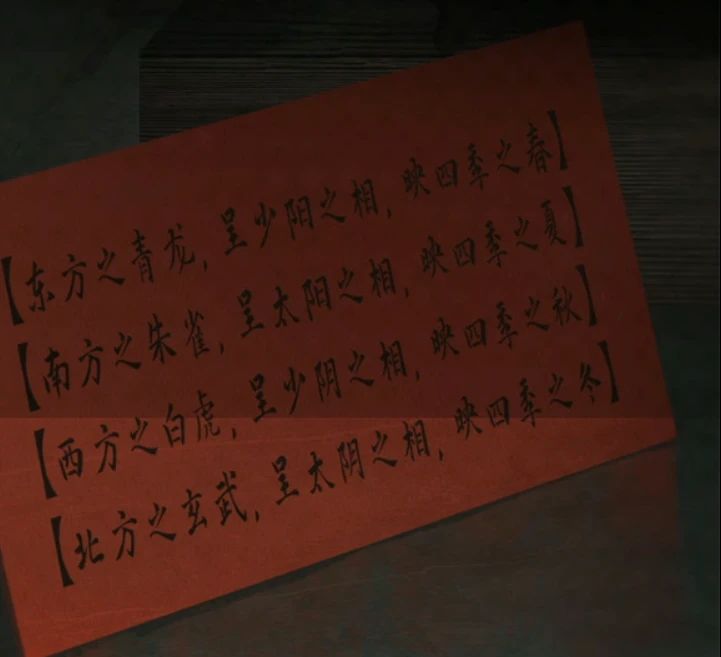 【东方之青龙，呈少阳之相，映四季之春】
【南方之朱雀，呈太阳之相，映四季之夏】
【西方之白虎，呈少阴之相，映四季之秋】
【北方之玄武，呈太阴之相，映四季之冬】